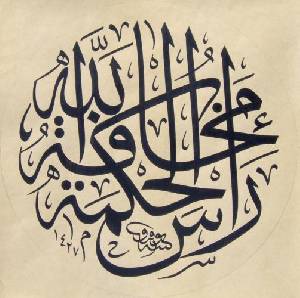 رأس الحكمة مخافة الله
١٤٢٧